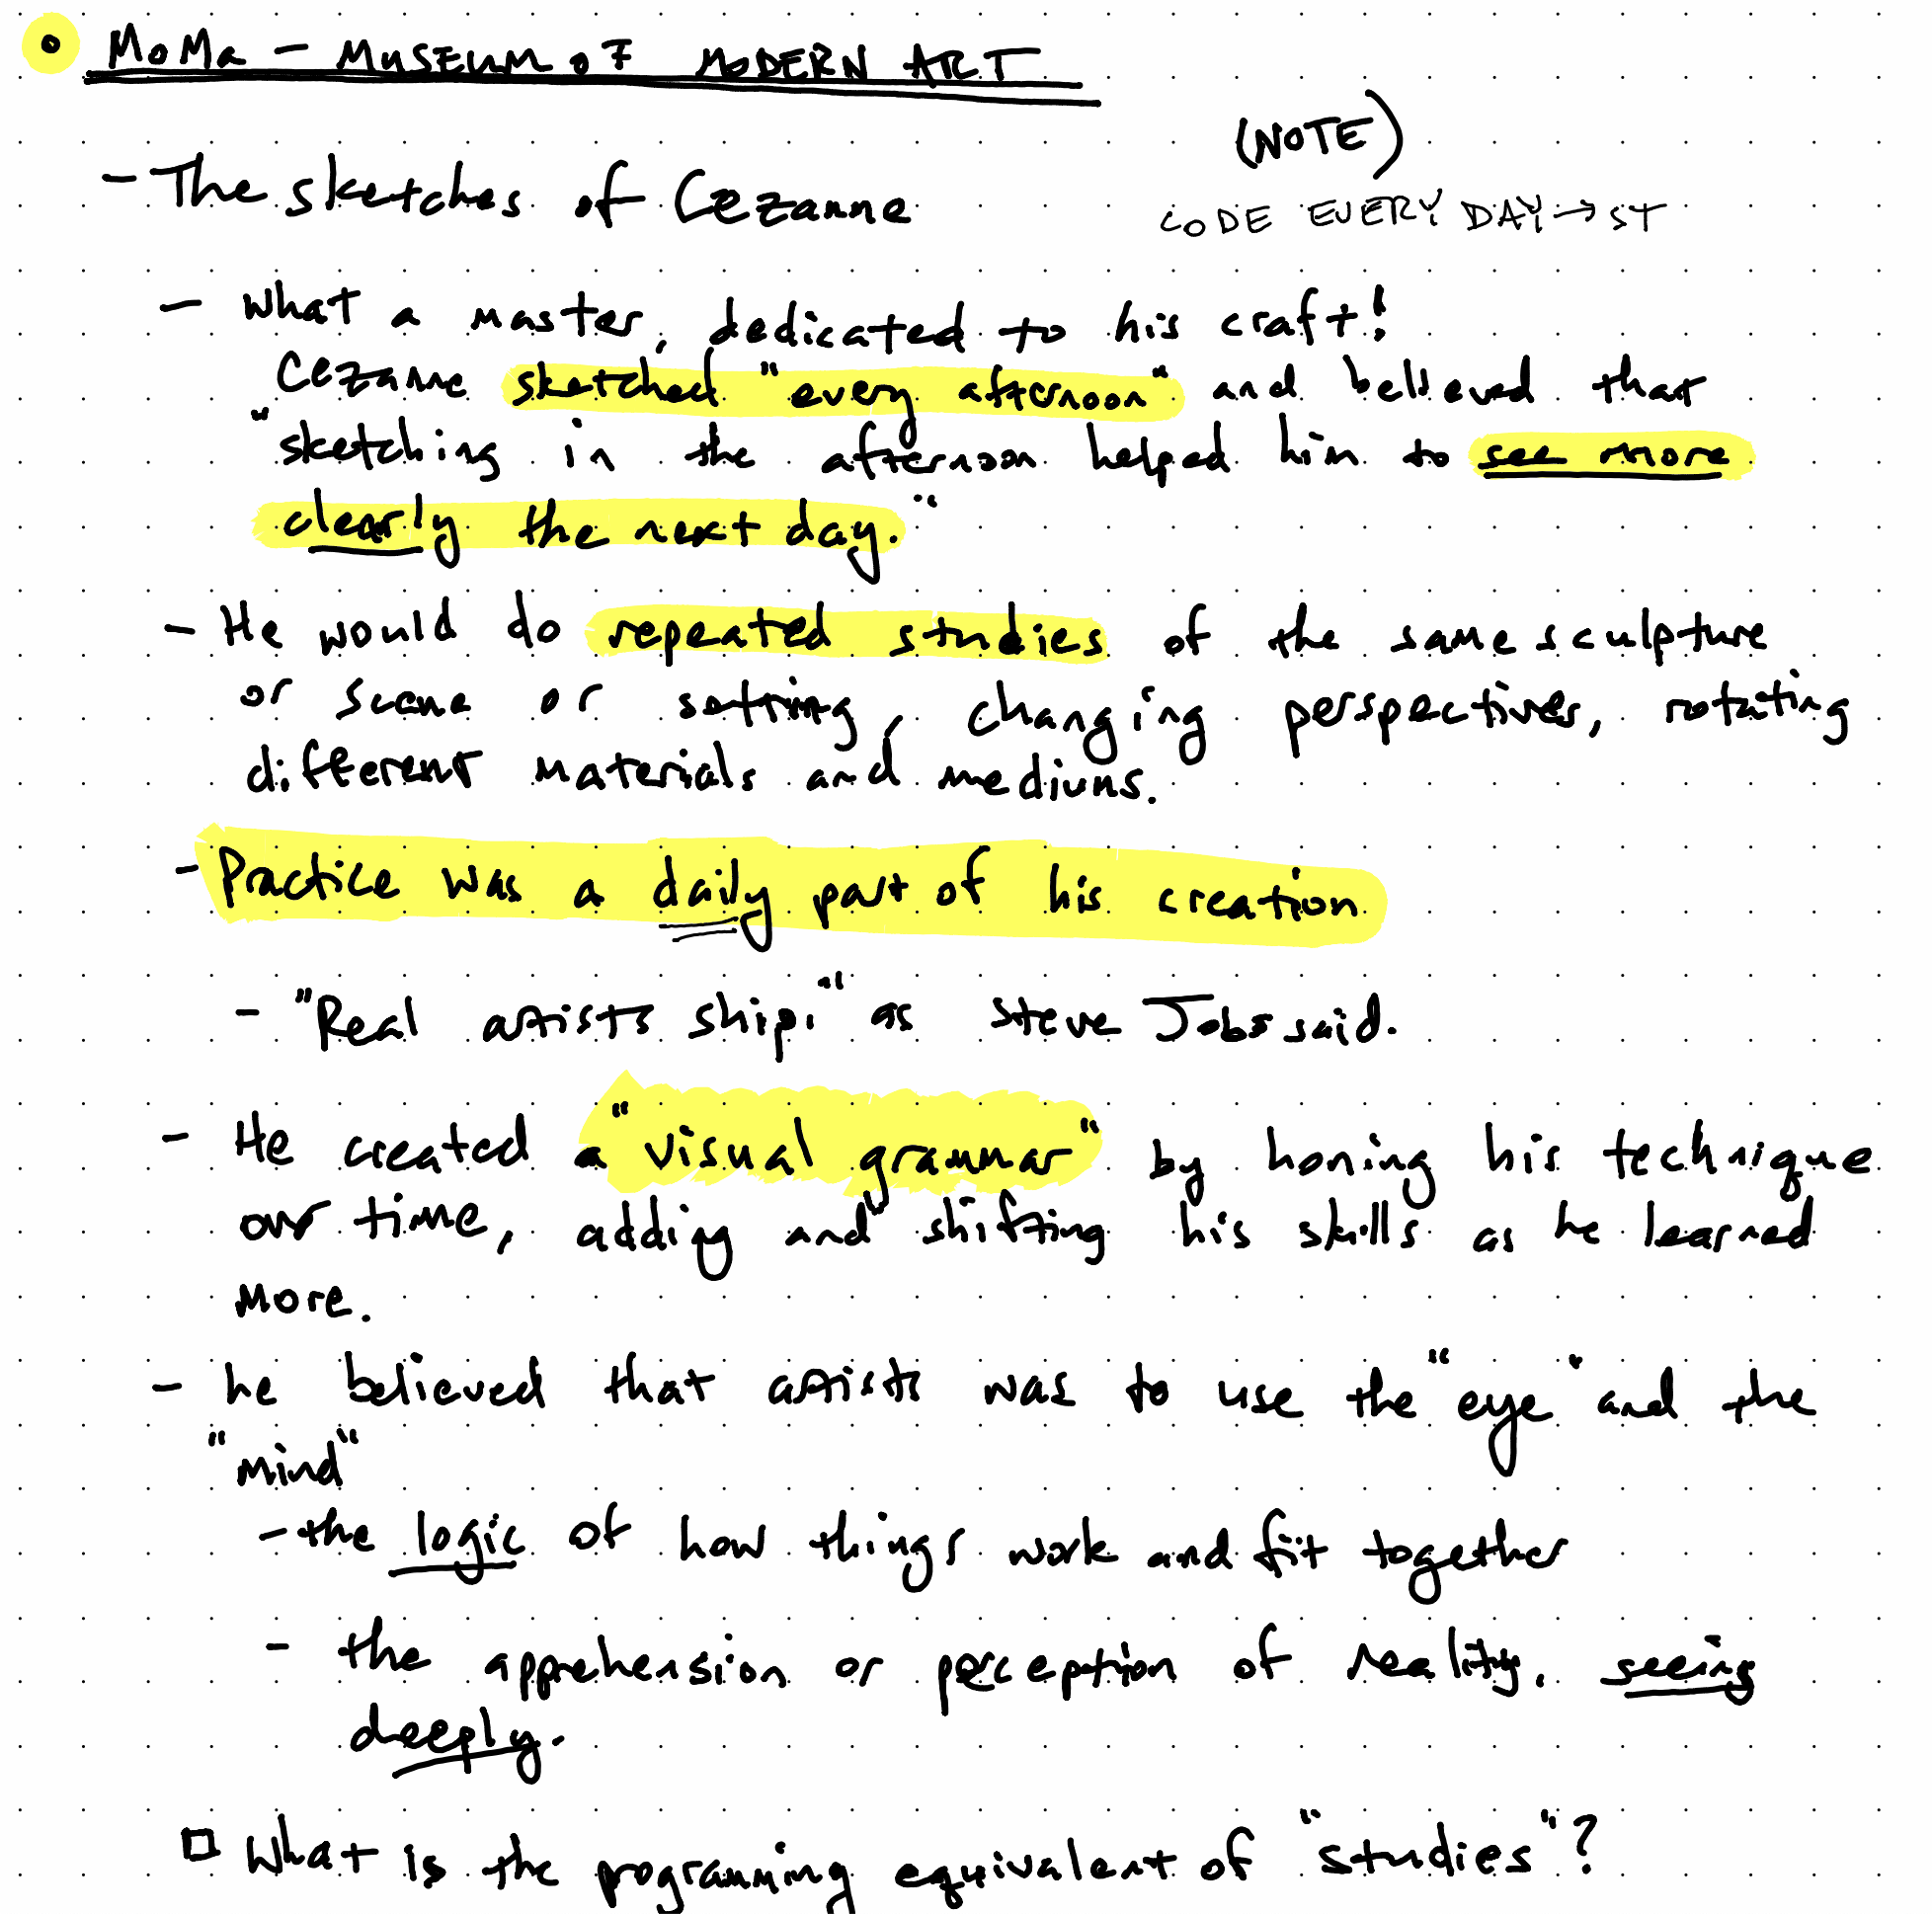 • MoMa – MUSEUM OF MODERN ART
(NOTE)
- The sketches of Cezanne
CODE EVERY DAY → ST
- What a master, dedicated to his craft!
Cezanne sketched "every afternoon" and believed that
"sketching in the afternoon helped him to see more
clearly the next day."
- He would do repeated studies of the same sculpture
or scene or setting, changing perspectives, rotating
different materials and mediums.
- Practice was a daily part of his creation
- "Real artists ship." as Steve Jobs said.
- He created a "visual grammar" by honing his technique
over time, adding and shifting his skills as he learned
more.
- he believed that artists was to use the "eye" and the
"mind"
- the logic of how things work and fit together
- the apprehension or perception of reality. seeing
deeply.
□ What is the programming equivalent of "studies"?